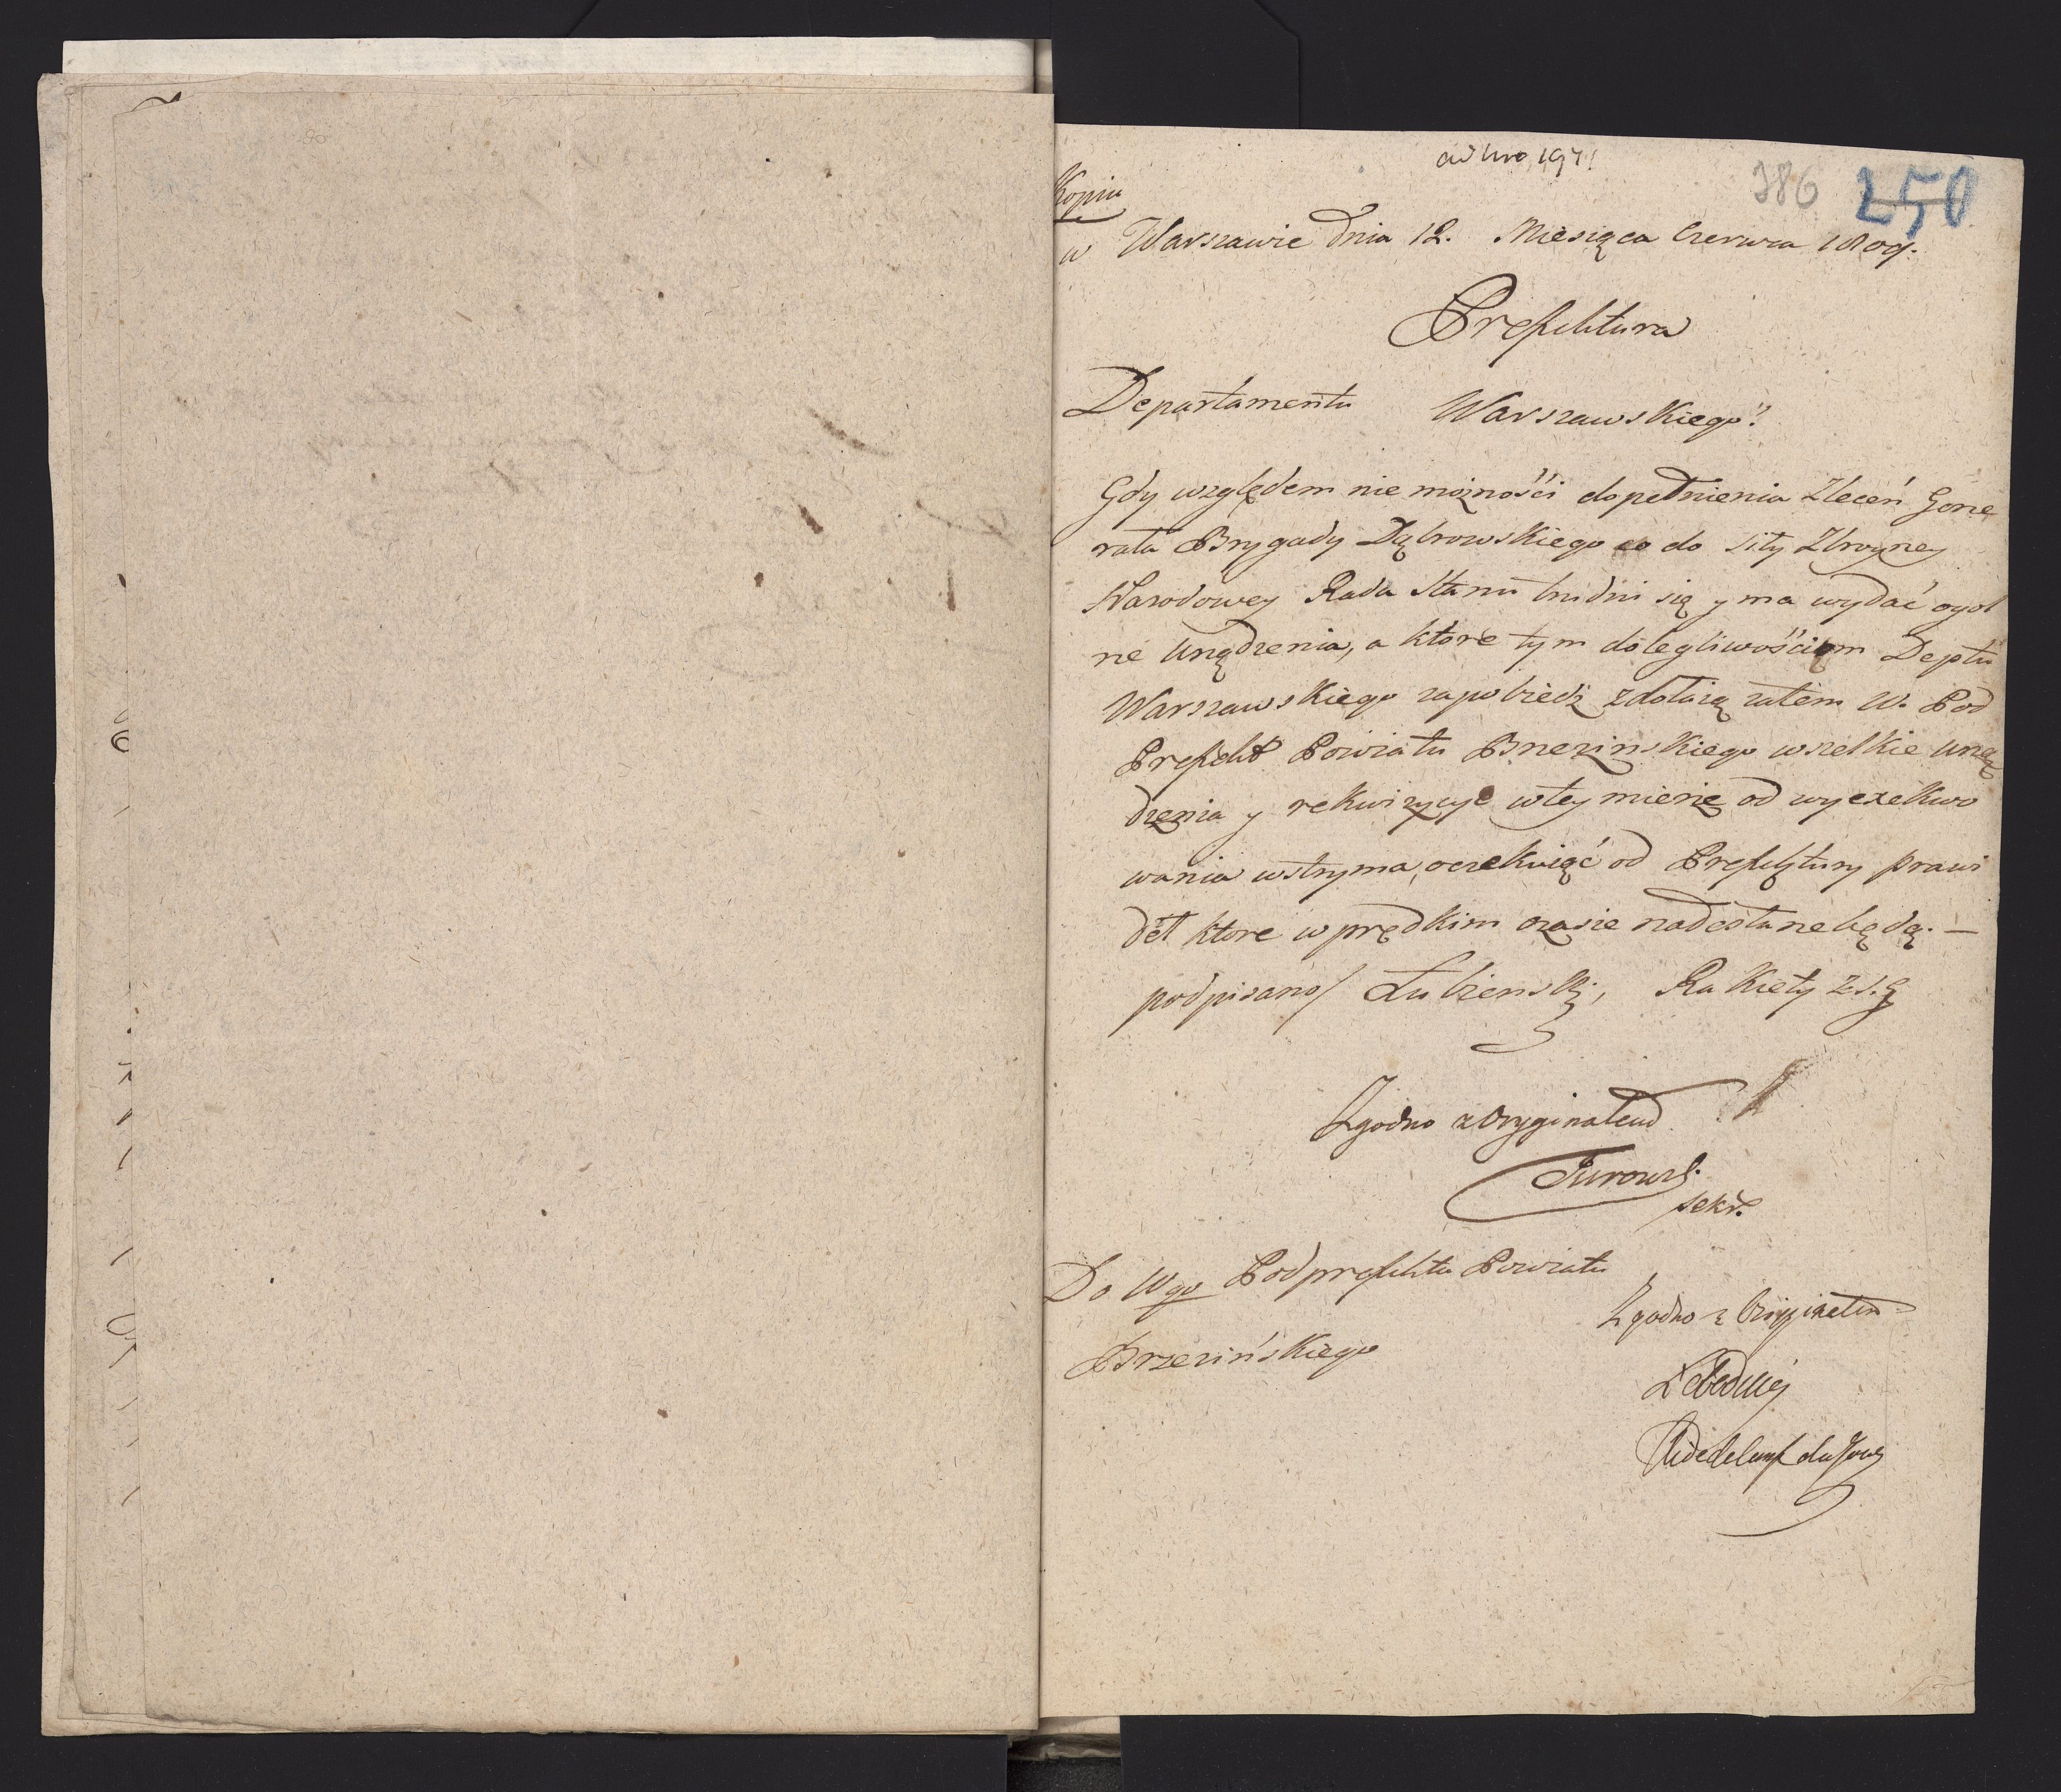 ad Nro 1971
386 250
Kopia
w Warszawie dnia 12. Miesiąca Czerwca 1809.
Prefektura
Departamentu Warszawskiego.
Gdy względem nie możnośći dopełnienia Zleceń Gene
rała Brygady Dąbrowskiego co do siły Zbroyney
Narodowey Rada Stanu trudni się y ma wydać ogol
ne urządzenia, a które tym dolegliwośćiom Deptu
Warszawskiego zapobiedz zdołaią zatem W. Pod
Prefekt Powiatu Brzezinskiego wszelkie urzą
dzenia y rekwizycye wtey mierze od wyexekwo
wania wstrzyma, oczekuiąć od Prefektury prawi
deł ktore w prędkim czasie nadesłane będą. —
podpisano/ Łubienski, Rakiety Z. S. J
Zgodno z Oryginałem
Turowski
sekr.
Do Wgo Podprefekta Powiatu
Brzezińskiego
Zgodno z Oryginałem